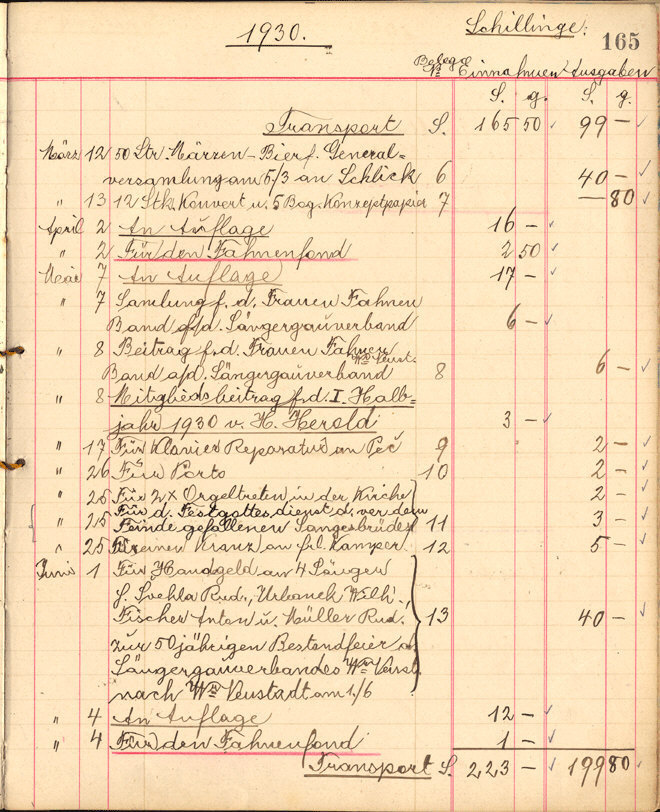 1930. Schillinge: 165
Belege
Nr Einnahmen Ausgaben
S. g. S. g.
Transport S. 165 50 99 –
März 12 50 Str. Märzen-Bier f. General=
versamlung am 5/3 an Schlick 6 40 –
" 13 12 Stk. Konvert u. 5 Bog. Konzeptpapier 7 – 80
April 2 An Auflage 16 –
" 2 Für den Fahnenfond 2 50
Mai 7 An Auflage 17 –
" 7 Samlung f. d. Frauen Fahnen
Band d. Sängergauverband 6 –
" 8 Beitrag f. d. Frauen Fahnen
Wr Neust.
Band a/d. Sängergauverband 8 6 –
" 8 Mitgliedsbeitrag f. d. I. Halb=
jahr 1930 v. H. Herold 3 –
" 17 Für Klavier Reparatur an Peč 9 2 –
" 26 Für Porto 10 2 –
" 25 Für 2 x Orgeltreten in der Kirche 2 –
" 25 Für d. Festgottesdienst d. vor dem
Feinde gefallenen Sangesbrüder 11 3 –
" 25 Für einen Kranz an Frl. Kamper. 12 5 –
Juni 1 Für Handgeld an 4 Sänger
H. Svehla Rud., Urbanek Wilh.,
Fischer Anton u. Müller Rud. 13 40 –
zur 50jährigen Bestandfeier d.
Sängergauverbandes Wr Neust.
nach Wr Neustadt am 1/6
" 4 An Auflage 12 –
" 4 Für den Fahnenfond 1 –
Transport S. 223 – 199 80